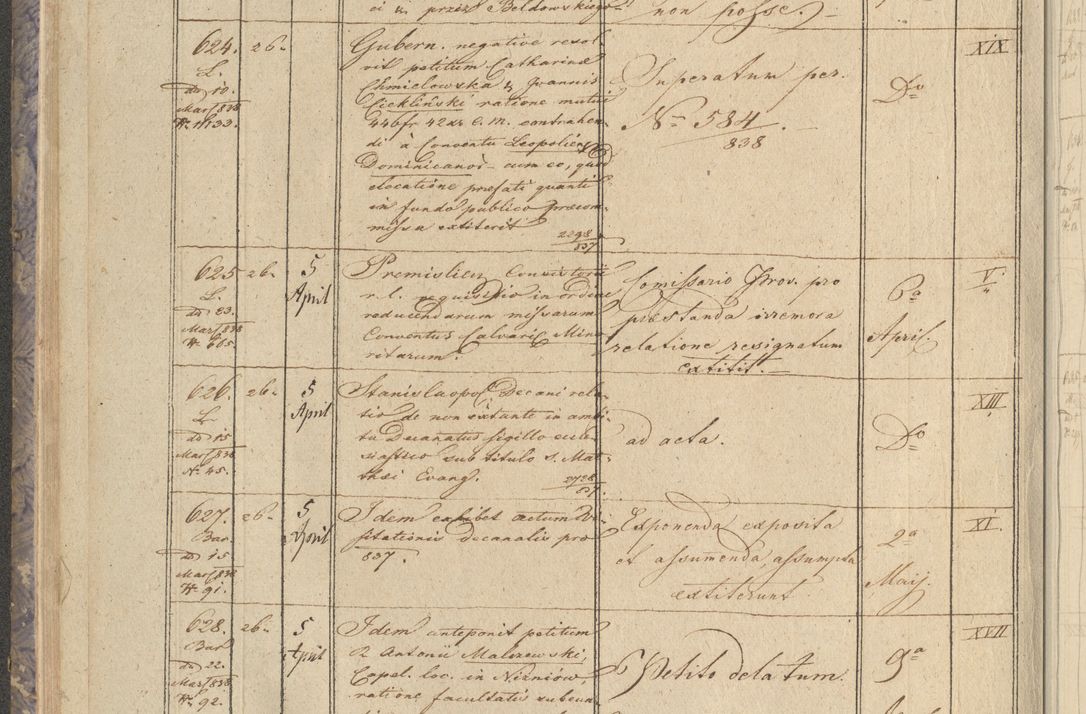 ci & przez Beldowskiego
non posse.
624. 26.
L.
dto 10.
Mart 838
Gubern. negative resol-
vit petitum Catharinæ
Chmielowska & Joannis
Cickliński ratione mutui
446 fr 42 xr C. M. contrahen-
di à Conventu Leopolien
Dominicanor. cum eo, quod
elocatione præfati quanti
in fundo publico præcom-
missa extiterit
2298
837
Superatum per
No 584.
838
Do
XIX
625 26.
L.
dto 23.
Mart 838
No 605.
5
April
Premislien Consistorii
r. l. requisitio in ordine
reducendarum missarum
Conventus Calvariæ Mino-
ritarum.
Comissario Prov. pro
præstanda irremora
relatione resignatum
extitit.
6a
April.
V.
626. 26.
L.
dto 15
Mart 838
No 45.
5
April
Stanislaopol. Decani rela-
tio de non extante in ambi-
tu Decanatus sigillo eccle-
siastico sub titulo s. Mat-
thæi Evang.
2728
837.
ad acta.
Do
XIII
627. 26.
Bar
dto 15
Mart 838
No 91.
5
April
Idem exhibet actum Vi-
sitationis decanalis pro
837.
Exponenda exposita
et assumenda, assumpta
extiterunt
2a
Maij.
XI.
628. 26.
Bar
dto 22.
Mart 838
No 92.
5
April
Idem anteponit petitum
R. Antonii Malszewski,
Capel. loc. in Niżniów,
ratione facultatis subeun-
Petito delatum.
9a
XVII